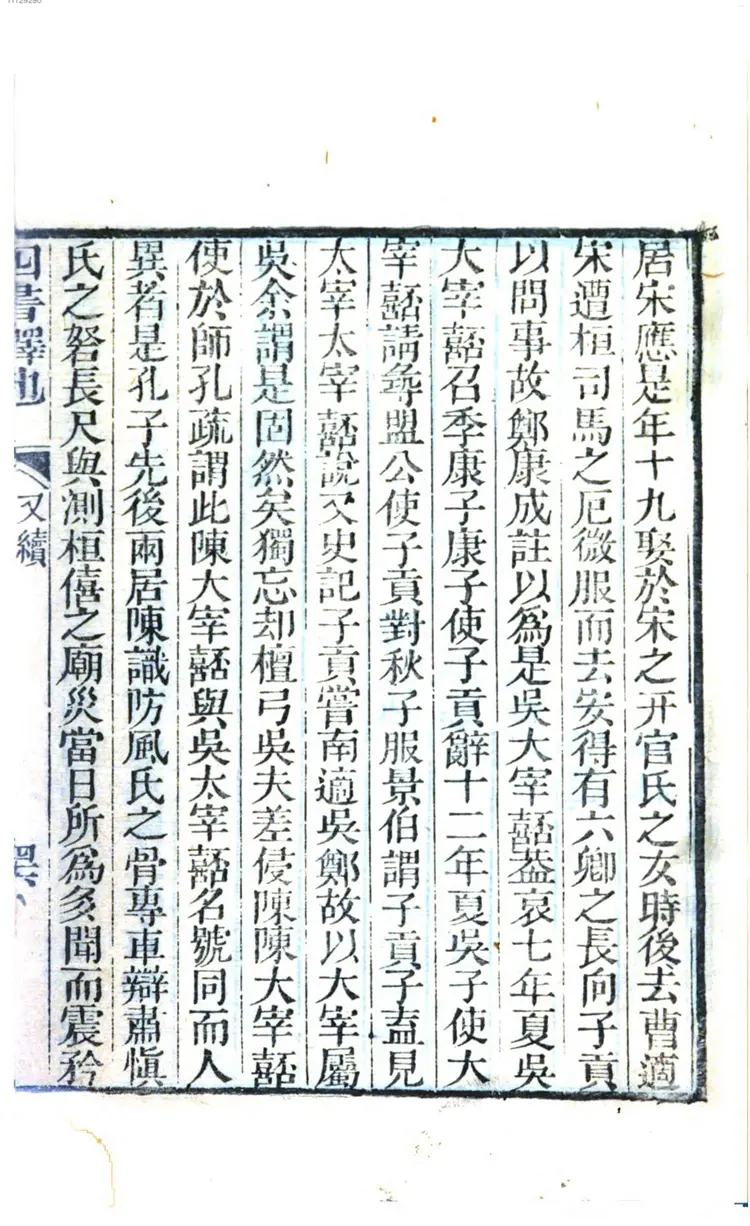 居宋應是年十九娶於宋之幵官氏之女時後去曹適
宋遭桓司馬之厄微服而去安得有六卿之長向子貢
以問事故鄭康成註以為是吳大宰嚭葢哀七年夏吳
大宰嚭召季康子康子使子貢辭十二年夏吳子使大
宰嚭請尋盟公使子貢對秋子服景伯謂子貢子盍見
太宰太宰嚭說又史記子貢嘗南適吳鄭故以大宰屬
吳余謂是固然矣獨忘却檀弓吳夫差侵陳陳大宰嚭
使於師孔疏謂此陳大宰嚭與吳太宰嚭名號同而人
異者是孔子先後兩居陳識防風氏之骨專車辯肅慎
氏之砮長尺與測桓僖之廟災當日所為多聞而震矜
四書釋地 又續